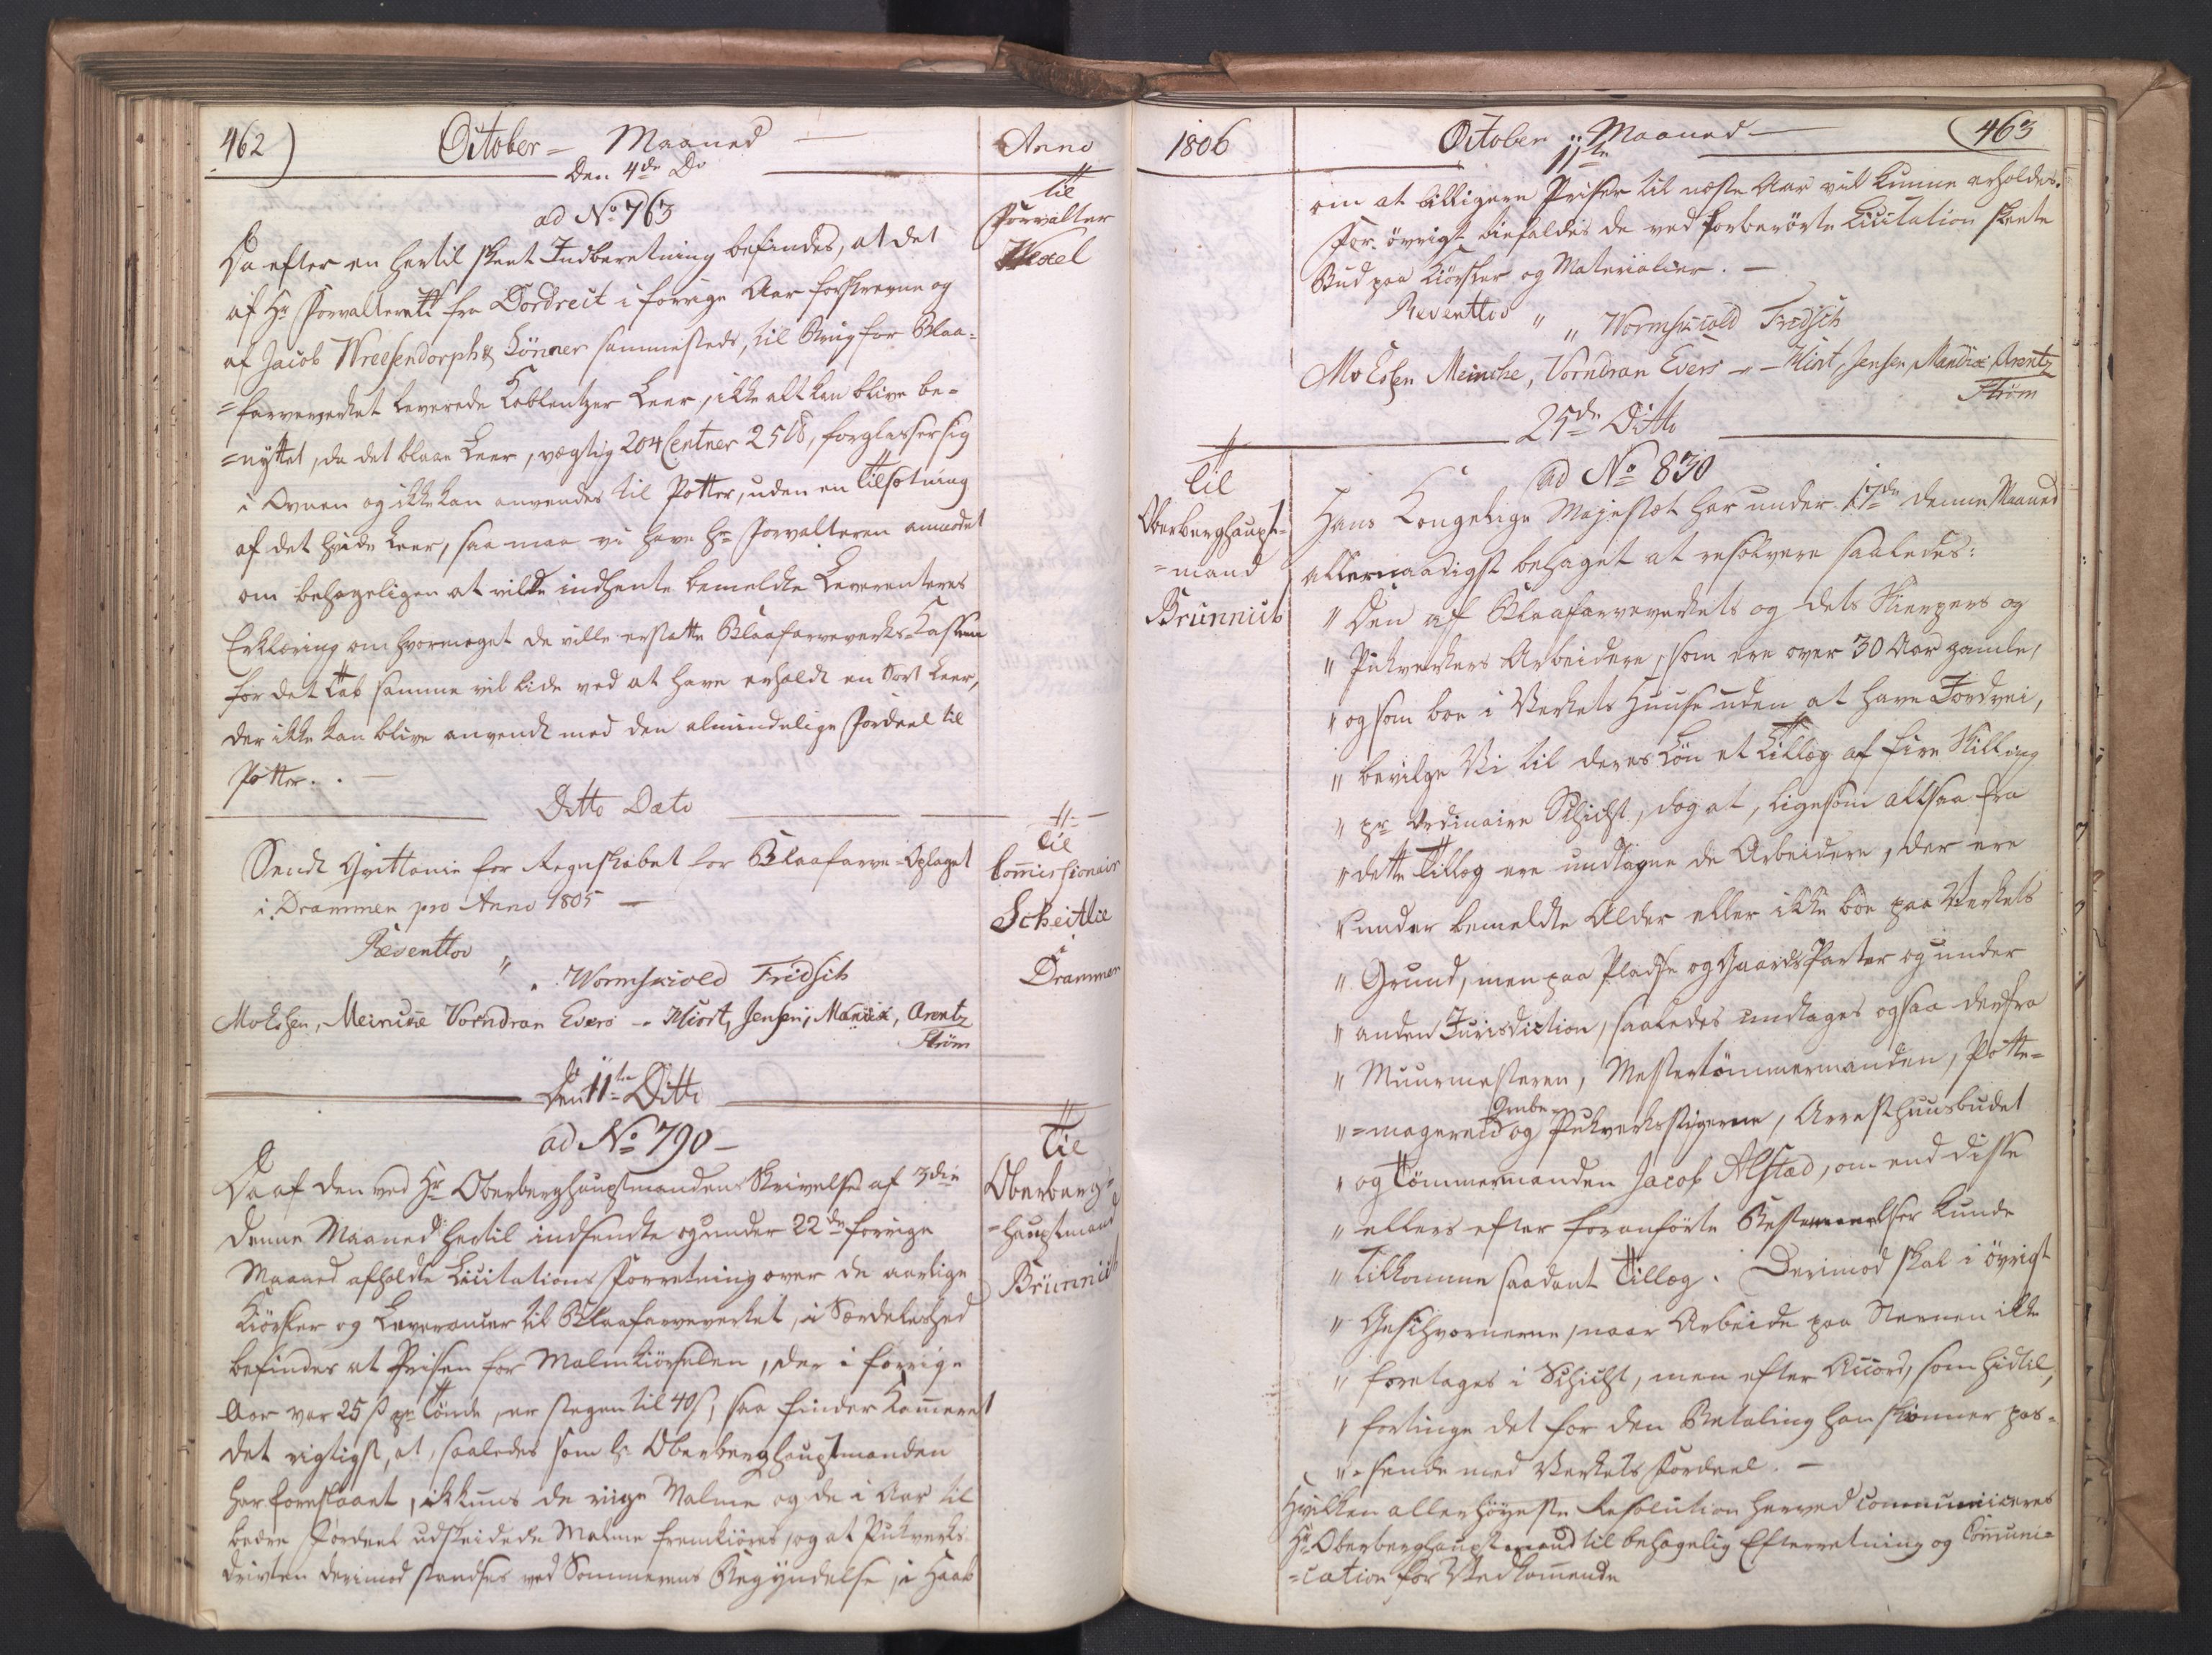 462)
October – Maaned –
Anno
Den 4de Do
Til
Forvalter
Wexel
ad No 763
Da efter en hertil skeet Indberetning befindes, at det
af Hr Forvalteren fra Dordrect i forrige Aar forskrevne og
af Jacob Vreesendorph & Sönner sammesteds, til Brug for Blaa-
=farveverket leverede Coblentzer Leer, ikke alt kan blive be-
=nyttet, da det blaae Leer, vægtig 204 Centner 25 ℔, forglasser sig
i Ovnen og ikke kan anvendes til Potter, uden en Tilsætning
af det hvide Leer, saa maa vi have Hr Forvalteren anmodet
om behageligen at vilde indhente bemeldte Leverenteres
Erklæring om hvormeget de ville erstatte Blaafarveverks-Cassen
for det Tab samme vil lide ved at have erholdt en Sort Leer,
der ikke kan blive anvendt med den almindelige Fordeel til
Potter. . –
Ditto Dato
Til
Com̅issionair
Scheitlie
i
Drammen
Sendt Qvittance for Regnskabet for Blaafarve-Oplaget
i Drammen pro Anno 1805 –
Reventlov " " Wormskiold Fridsch
Moessen, Meincke Vorndran Evers – Hiort, Jensen, Mandix, Arentz
Strøm
Den 11te Ditto
Til
Oberberg-
=hauptmand
Brünnich
ad No 790 –
Da af den ved Hr Oberberghauptmandens Skrivelse af 3die
denne Maaned hertil indsendte og under 22de forrige
Maaned afholdte Licitations Forretning over de aarlige
Kiörsler og Leverancer til Blaafarveverket, i Særdeleshed
befindes at Prisen for Malmkiörselen, der i forrige
Aar var 25 ß pr Tönde, er stegen til 40 ß, saa finder Kam̅eret
det rigtigst, at, saaledes som Hr Oberberghauptmanden
har foreslaaet, ikkuns de riige Malme og de i Aar til
bedre Fordeel udskeidede Malme fremkiöres, og at Pukverks-
driften derimod standses ved Sommerens Begyndelse, i Haab
1806
October :: Maaned –
(463
11te
om at billigere Priser til næste Aar vil kunne erholdes.
For övrigt biefaldes de ved forberörte Licitation skeete
Bud paa Kiörsler og Materialier. –
Reventlov " " Wormskiold Fridsch
Moessen Meincke, Vorndran Evers – – Hiort, Jensen Mandix Arentz
Strøm
25de Ditto
Til
Oberberghaupt-
=mand
Brünnich
ad No 830
Hans Kongelige Majestæt har under 17de denne Maaned
allernaadigst behaget at resolvere saaledes:
" Den af Blaafarveverkets og dets Skierpers og
" Pukverkers Arbeidere, som ere over 30 Aar gamle,
" og som boe i Verkets Huuse uden at have Jordvei,
" bevilge Vi til deres Løn et Tillæg af fire Skilling
" pr ordinaire Schicht, dog at, ligesom altsaa fra
" dette Tillæg ere undtagne de Arbeidere, der ere
" under bemeldte Alder eller ikke boe paa Verkets
" Grund, men paa Pladse og Gaards Parter og under
" anden Jurisdiction, saaledes undtages ogsaa derfra
" Muurmesteren, Mestertömmermanden, Potte-
Grube-
" =mageren og Pukverksstigerne, Arresthuusbudet
" og Tömmermanden Jacob Alstad, om end disse
" ellers efter foranförte Bestemmelser kunde
" tilkomme saadant Tillæg. Derimod skal i övrigt
" Geschvornerne, naar Arbeide paa Steenen ikke
" foretages i Schicht, men efter Accord, som hidtil,
" fortinge det for den Betaling han skiönner pas-
" =sende med Verkets Fordeel. –
Hvilken allerhöyeste Resolution herved communiceres
Hr Oberberghauptmand til behagelig Efterretning og Com̅uni-
=cation for Vedkom̅ende